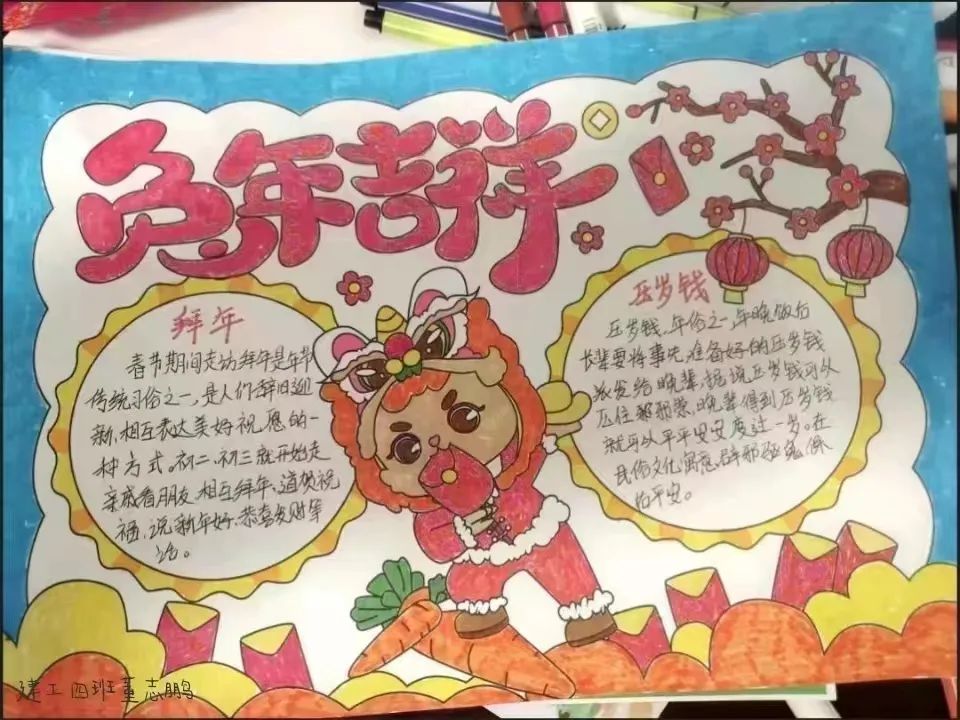 兔年吉祥
拜年
春节期间走访拜年是年节
传统习俗之一,是人们辞旧迎
新、相互表达美好祝愿的一
种方式。初二、初三就开始走
亲戚看朋友,相互拜年,道贺祝
福,说新年好,恭喜发财等
话。
压岁钱
压岁钱,年俗之一,年晚饭后
长辈要将事先准备好的压岁钱
派发给晚辈,据说压岁钱可以
压住邪祟,晚辈得到压岁钱
就可以平平安安度过一岁。在
民俗文化寓意辟邪驱鬼,保
佑平安。
建工四班董志鹏